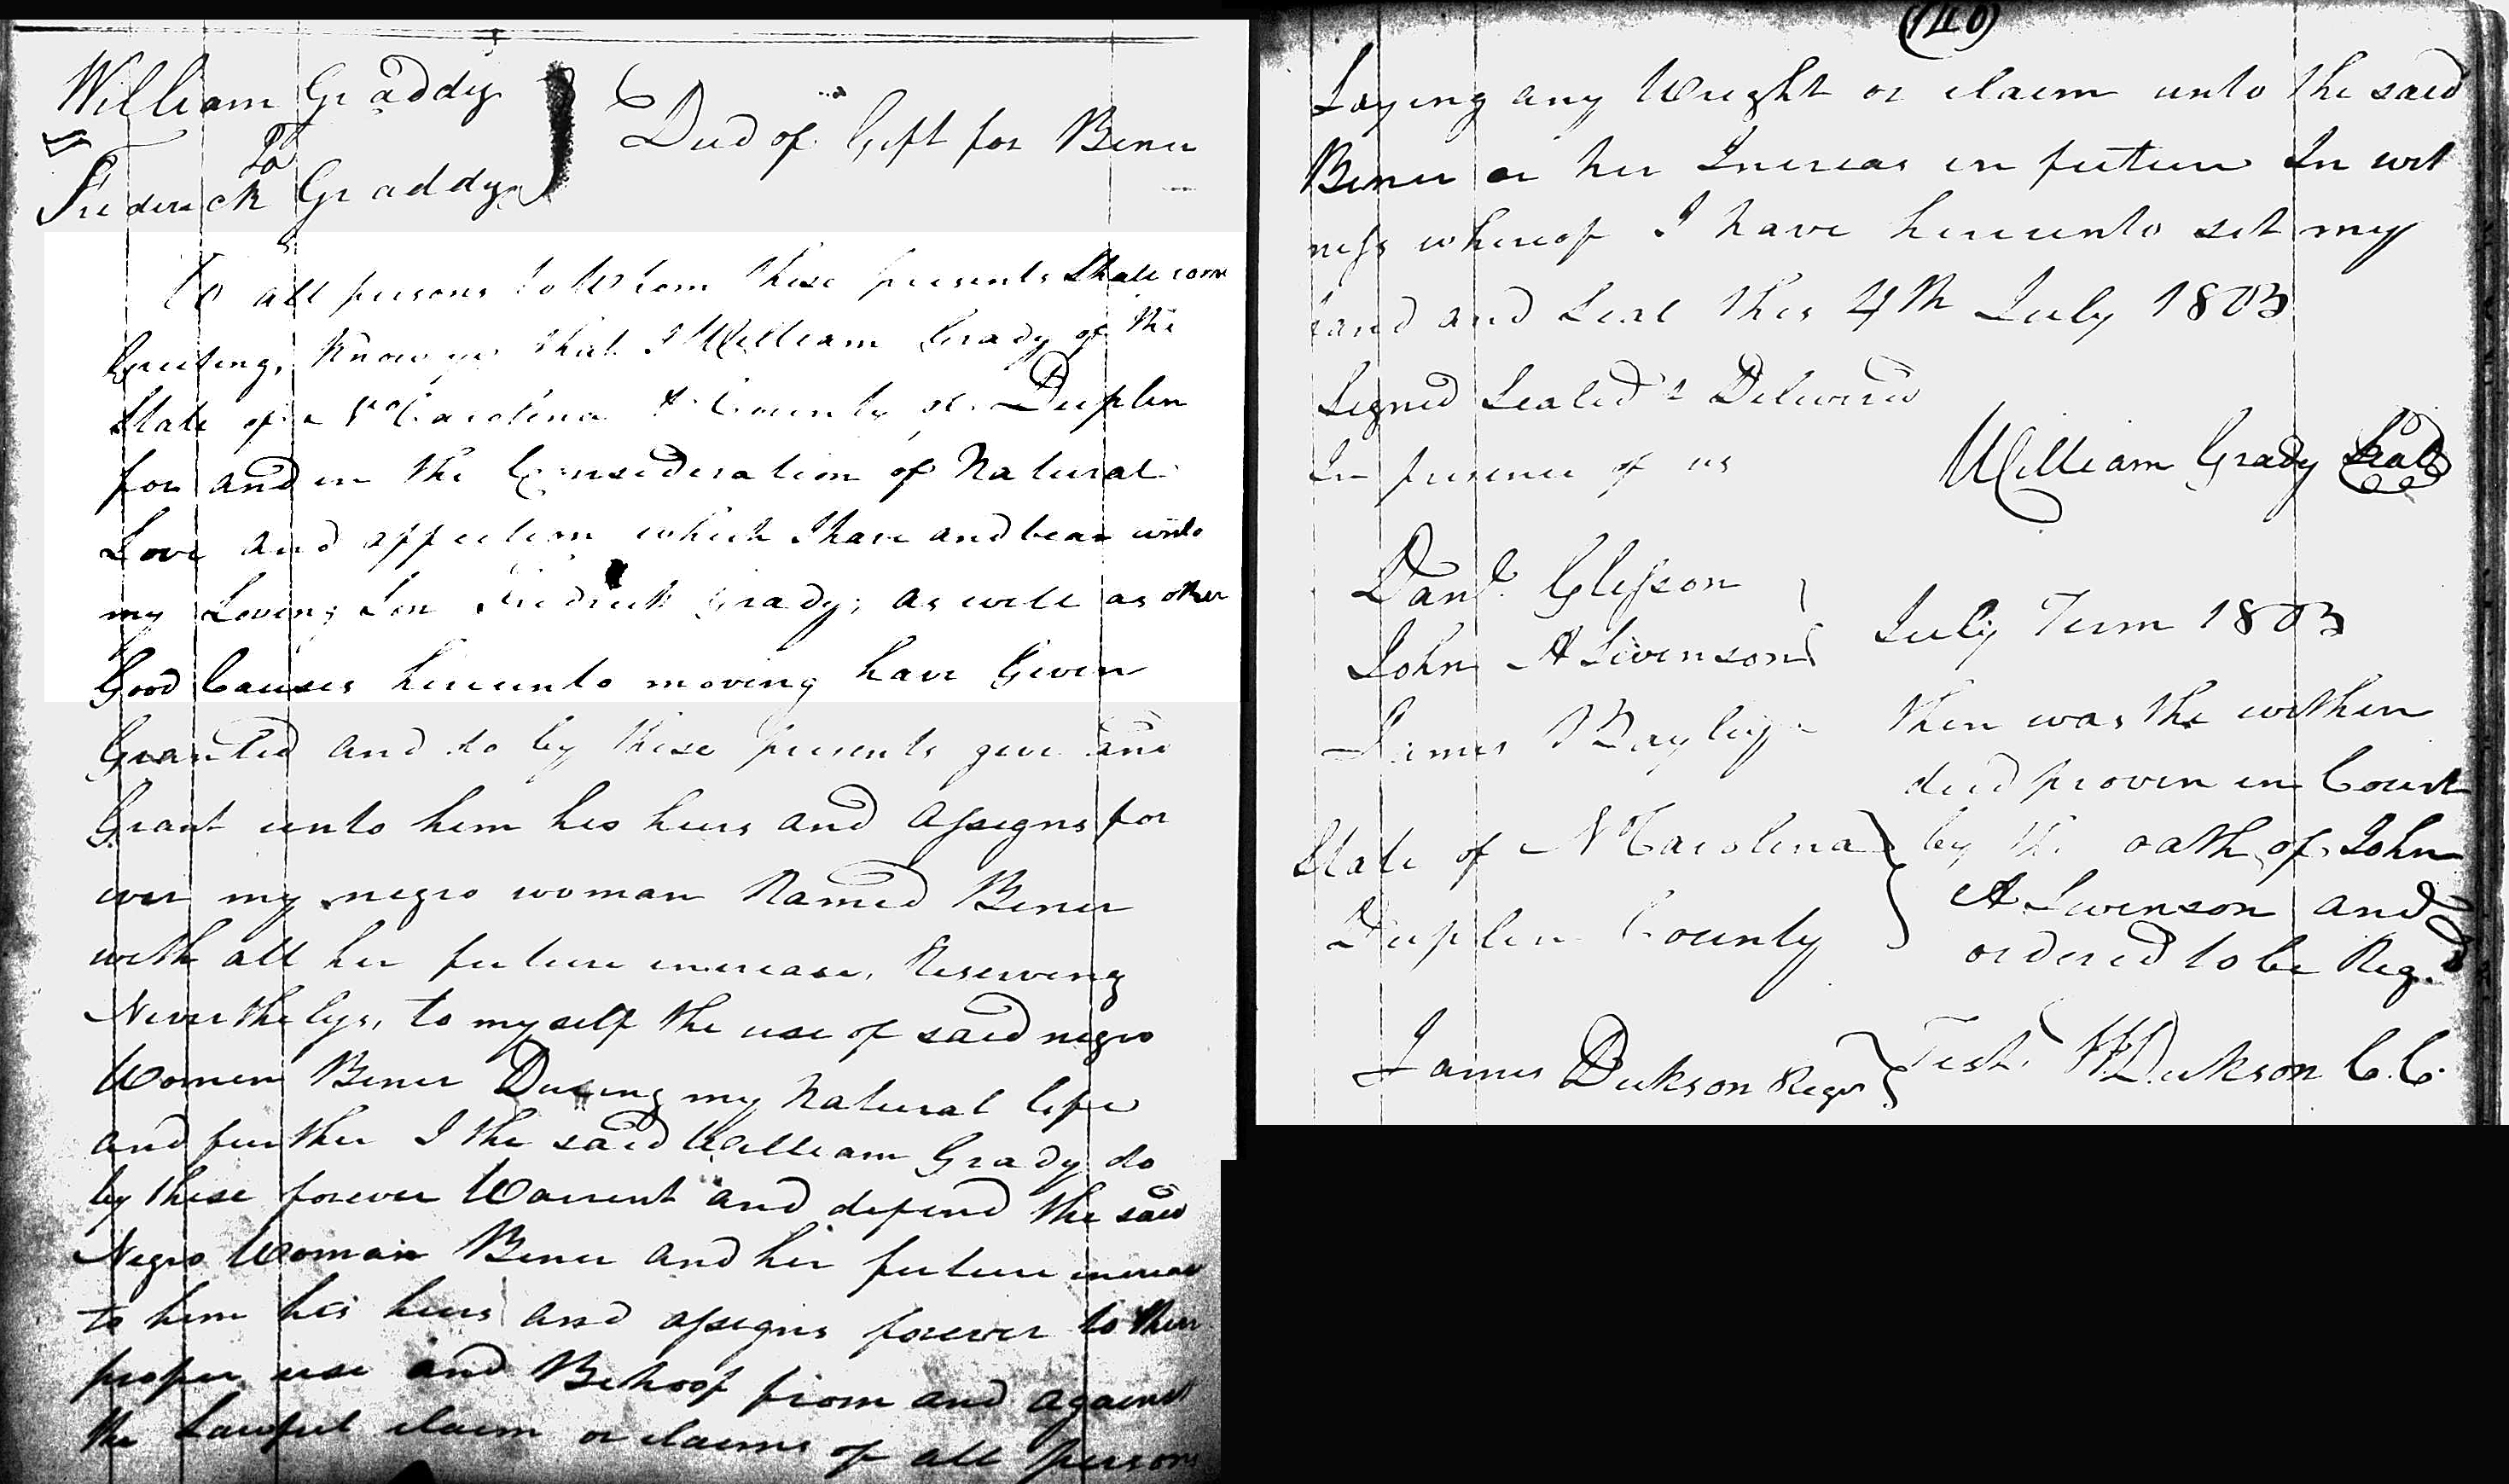 William Graddy
To
Frederick Graddy
Deed of Gift for Bener
To all persons to Whom these presents Shall come
Greeting, Know ye that I William Grady of the
State of N Carolina & County of Duplin
for and in the Consideration of Natural
Love and affection which I have and bear unto
my Loving Son Fredrick Grady, as well as other
Good Causes hereunto moving have Given
Granted and do by these presents give and
Grant unto him his heirs and assigns for
ever my negro woman Named Bener
with all her future increase, Reserving
Nevertheless, to myself the use of said negro
Women Bener During my Natural life
and further I the said William Grady do
by these forever Warrent and defend the said
Negro Woman Bener and her future increas
to him his heirs and assigns forever to their
proper use and Behoof from and against
the Lawful claim or claims of all persons
(140)
Laying any Wright or claim unto the said
Bener or her Increas in future In wit
ness whereof I have hereunto set my
hand and Seal this 4th July 1803
Signed Sealed & Delivered
In presence of us
William Grady Seal
Danl. Glisson
John A Sivenson
July Term 1803
James Bayley
then was the within
deed proven in Court
State of N Carolina
by the oath of John
A Sivenson and
Duplin County
ordered to be Regd.
James Dickson Regr
Test. W. Dickson C.C.